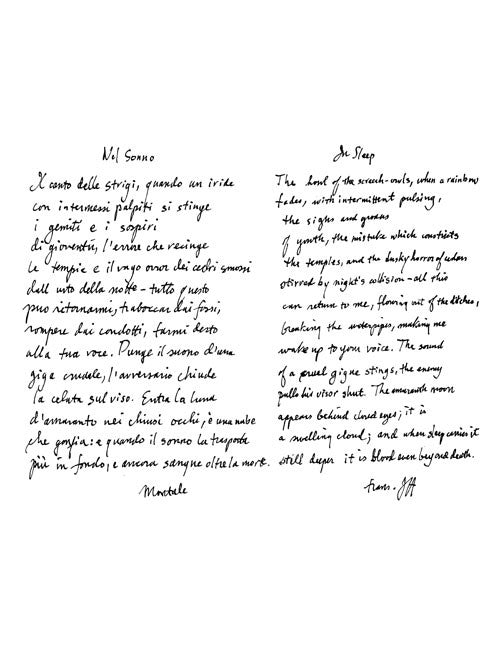 Nel Sonno
Il canto delle strigi, quando un iride
con intermessi palpiti si stinge
i gemiti e i sospiri
di gioventù, l'errore che recinge
le tempie e il vago orror dei cedri smossi
dall urto della notte – tutto questo
può ritornarmi, traboccar dai fossi,
rompere dai condotti, farmi desto
alla tua voce. Punge il suono d'una
giga crudele, l'avversario chiude
la celata sul viso. Entra la luna
d'amaranto nei chiusi occhi, è una nube
che gonfia: e quando il sonno la trasporta
più in fondo, è ancora sangue oltre la morte.
Montale
In Sleep
The howl of the screech-owls, when a rainbow
fades, with intermittent pulsing,
the sighs and groans
of youth, the mistake which constricts
the temples, and the dusky horror of cedars
stirred by night's collision – all this
can return to me, flowing out of the ditches,
breaking the waterpipes, making me
wake up to your voice. The sound
of a cruel gigue stings, the enemy
pulls his visor shut. The amaranth moon
appears behind closed eyes; it is
a swelling cloud; and when sleep carries it
still deeper it is blood even beyond death.
trans.